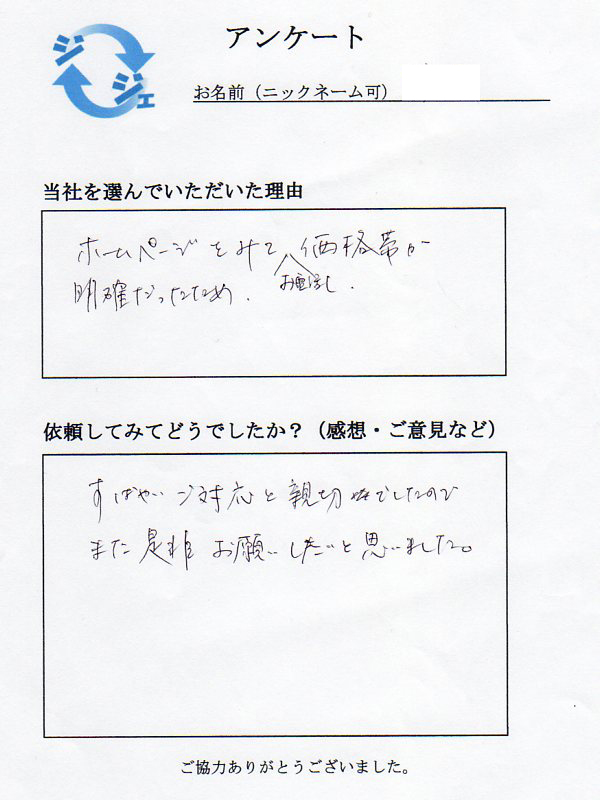 ジジェ
アンケート
お名前（ニックネーム可）
当社を選んでいただいた理由
ホームページをみて 価格帯が
お電話し.
明確だったため.
依頼してみてどうでしたか？（感想・ご意見など）
すばやいご対応と親切でしたので
また是非お願いしたいと思いました。
ご協力ありがとうございました。